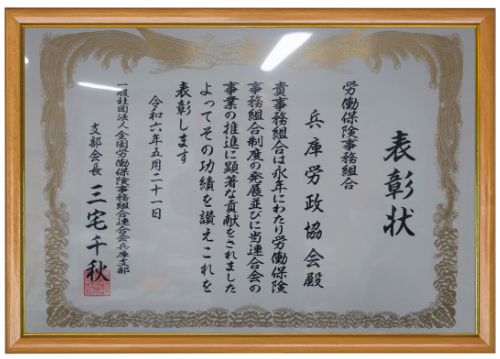 表彰状
労働保険事務組合
兵庫労政協会殿
貴事務組合は永年にわたり労働保険
事務組合制度の発展並びに当連合会の
事業の推進に顕著な貢献をされました
よってその功績を讃えこれを
表彰します
令和六年五月二十一日
一般社団法人全国労働保険事務組合連合会兵庫支部
支部会長 三宅千秋